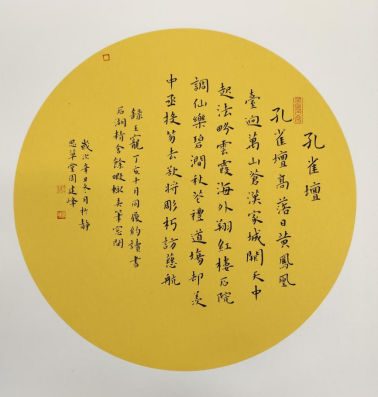 孔雀壇
孔雀壇高落日黃鳳凰
臺迥萬山蒼漢家城闕天中
起法吟雲霞海外翔紅樓石院
調仙樂碧澗秋花禮道場却羨
中巫投笏去欲將彫朽訪慈航
錄王寵丁亥十月同履約讀書
石湖精舍餘暇
歲次辛丑冬月於靜
思草堂周建峰